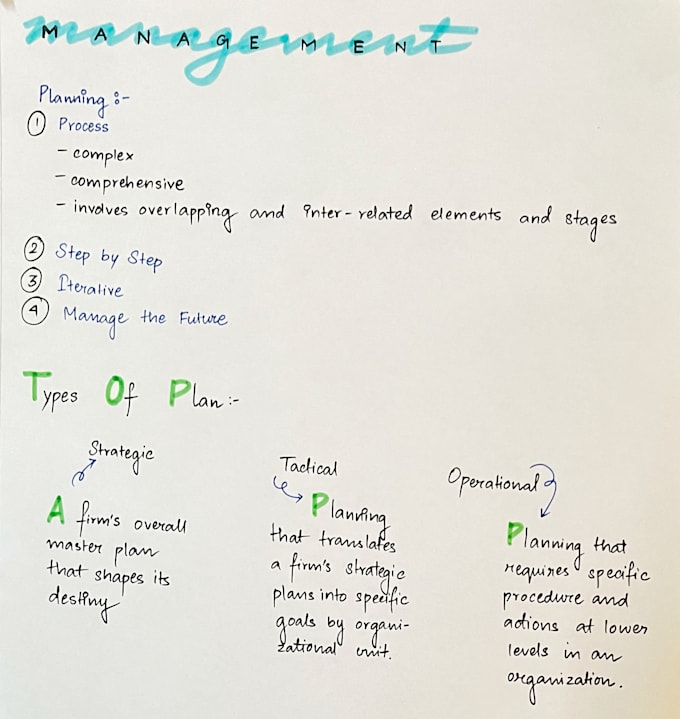 MANAGEMENT
management
Planning :-
① Process
- complex
- comprehensive
- involves overlapping and inter-related elements and stages
② Step by Step
③ Iterative
④ Manage the Future
Types Of Plan :-
Strategic
A firm's overall
master plan
that shapes its
destiny
Tactical
Planning
that translates
a firm's strategic
plans into specific
goals by organi-
zational unit.
Operational
Planning that
requires specific
procedure and
actions at lower
levels in an
organization.